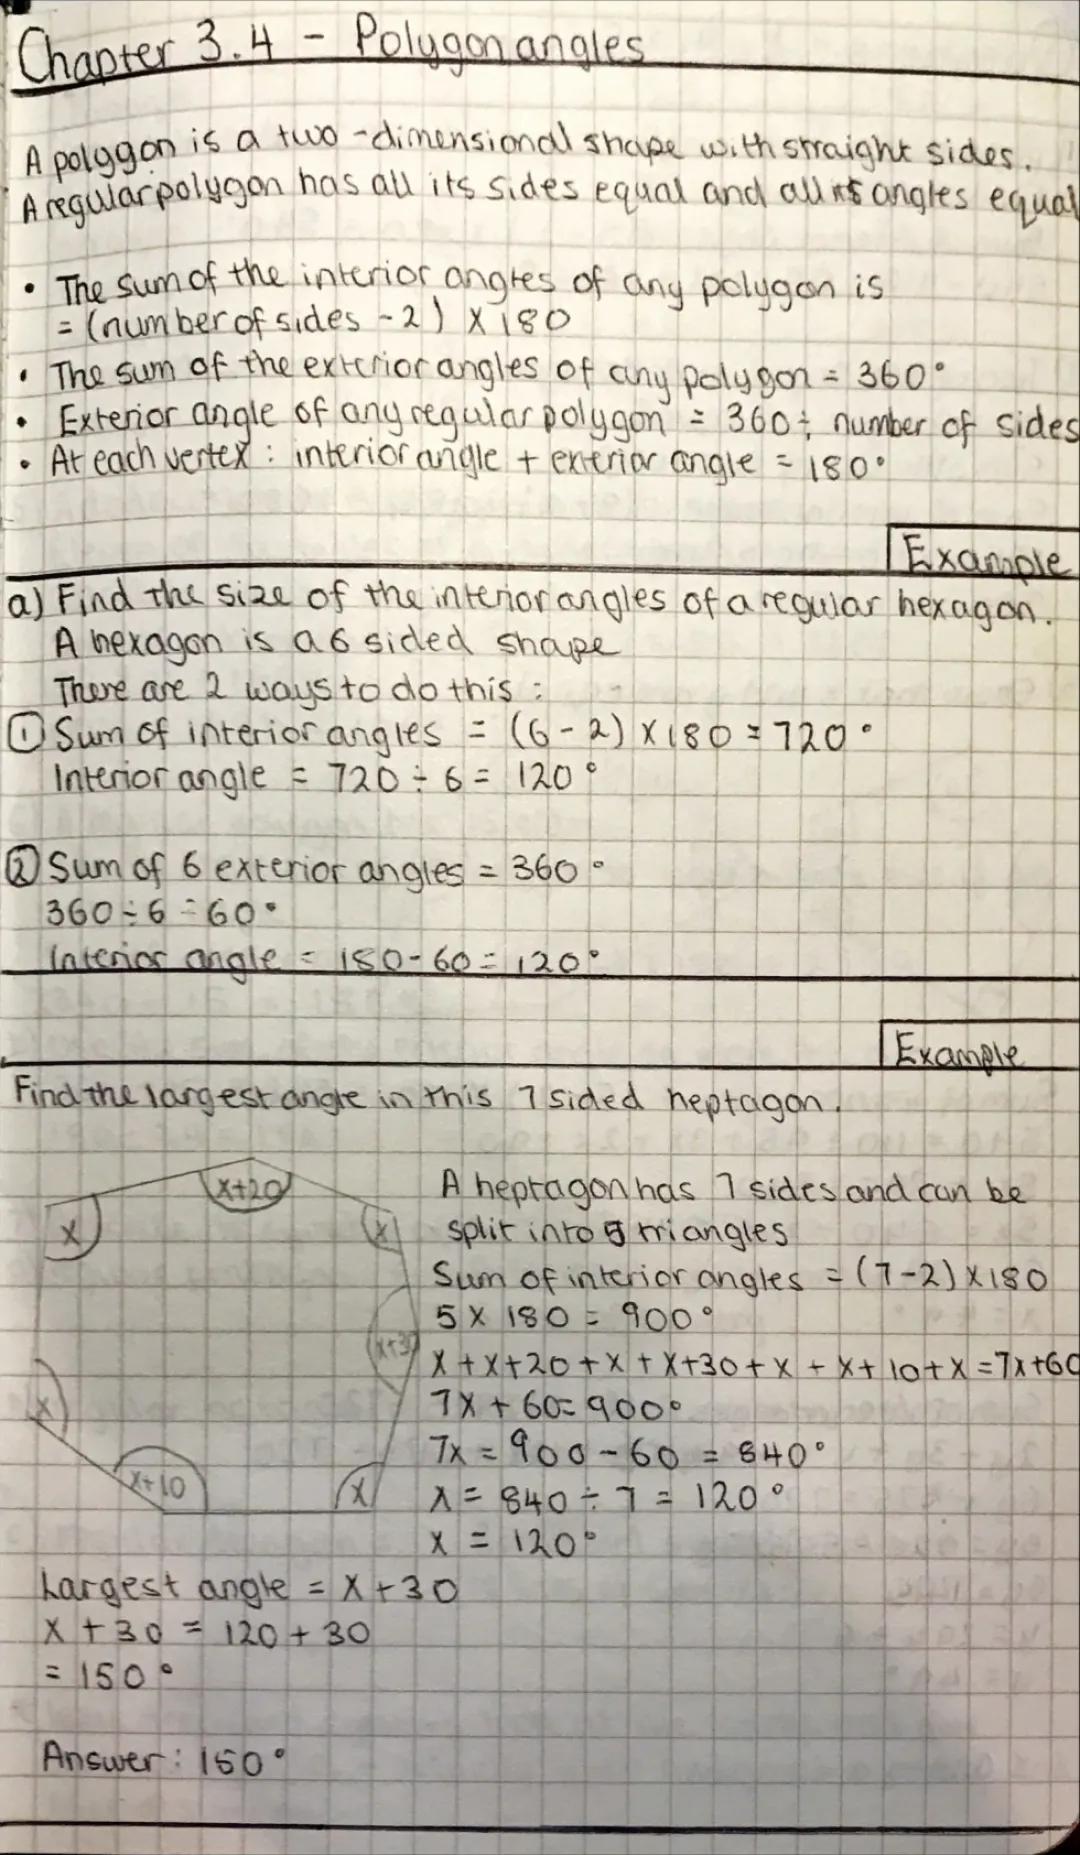 Chapter 3.4 - Polygon angles
A polygon is a two-dimensional shape with straight sides.
A regular polygon has all its sides equal and all its angles equal
• The sum of the interior angles of any polygon is
= (number of sides - 2) × 180
• The sum of the exterior angles of any polygon = 360°
• Exterior angle of any regular polygon = 360 ÷ number of sides
• At each vertex : interior angle + exterior angle = 180°
Example
a) Find the size of the interior angles of a regular hexagon.
A hexagon is a 6 sided shape
There are 2 ways to do this :
① Sum of interior angles = (6 - 2) × 180 = 720°
Interior angle = 720 ÷ 6 = 120°
② Sum of 6 exterior angles = 360°
360 ÷ 6 = 60°
Interior angle = 180 - 60 = 120°
Example
Find the largest angle in this 7 sided heptagon.
x+20
x
x
x+30
x
x+10
x
A heptagon has 7 sides and can be
split into 5 triangles
Sum of interior angles = (7-2) × 180
5 × 180 = 900°
x + x+20 + x + x+30 + x + x+10 + x = 7x+60
7x + 60 = 900°
7x = 900 - 60 = 840°
x = 840 ÷ 7 = 120°
x = 120°
Largest angle = x + 30
x + 30 = 120 + 30
= 150°
Answer : 150°